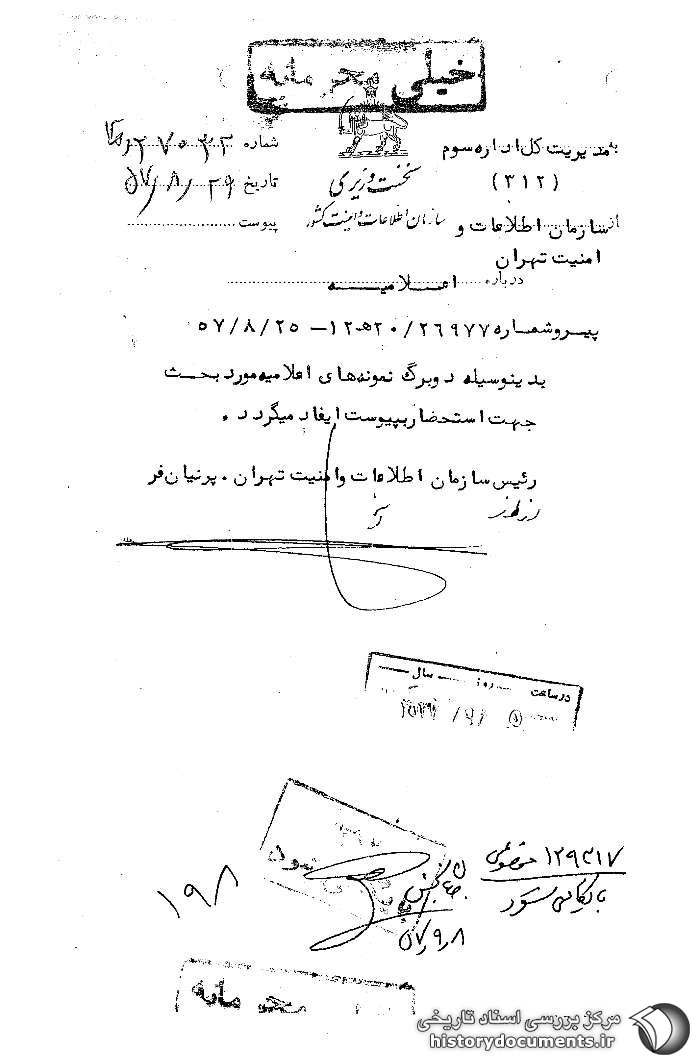 خیلی محرمانه
به مدیریت کل اداره سوم
(۳۱۲)
از سازمان اطلاعات و
امنیت تهران
درباره اعلامیه
نخست وزیری
سازمان اطلاعات و امنیت کشور
شماره
تاریخ ۵۷/۸/۲۹
پیوست
پیرو شماره ۲۶۹۷۷/ ۲۰ هـ ۱۲ – ۵۷/۸/۲۵
بدینوسیله دو برگ نمونه‌های اعلامیه مورد بحث
جهت استحضار بپیوست ایفاد میگردد .
رئیس سازمان اطلاعات و امنیت تهران . پرنیان فر
در ساعت روز سال
بایگانی شود
۵۷/۹/۸
۱۹۸
محرمانه
مرکز بررسی اسناد تاریخی
historydocuments.ir